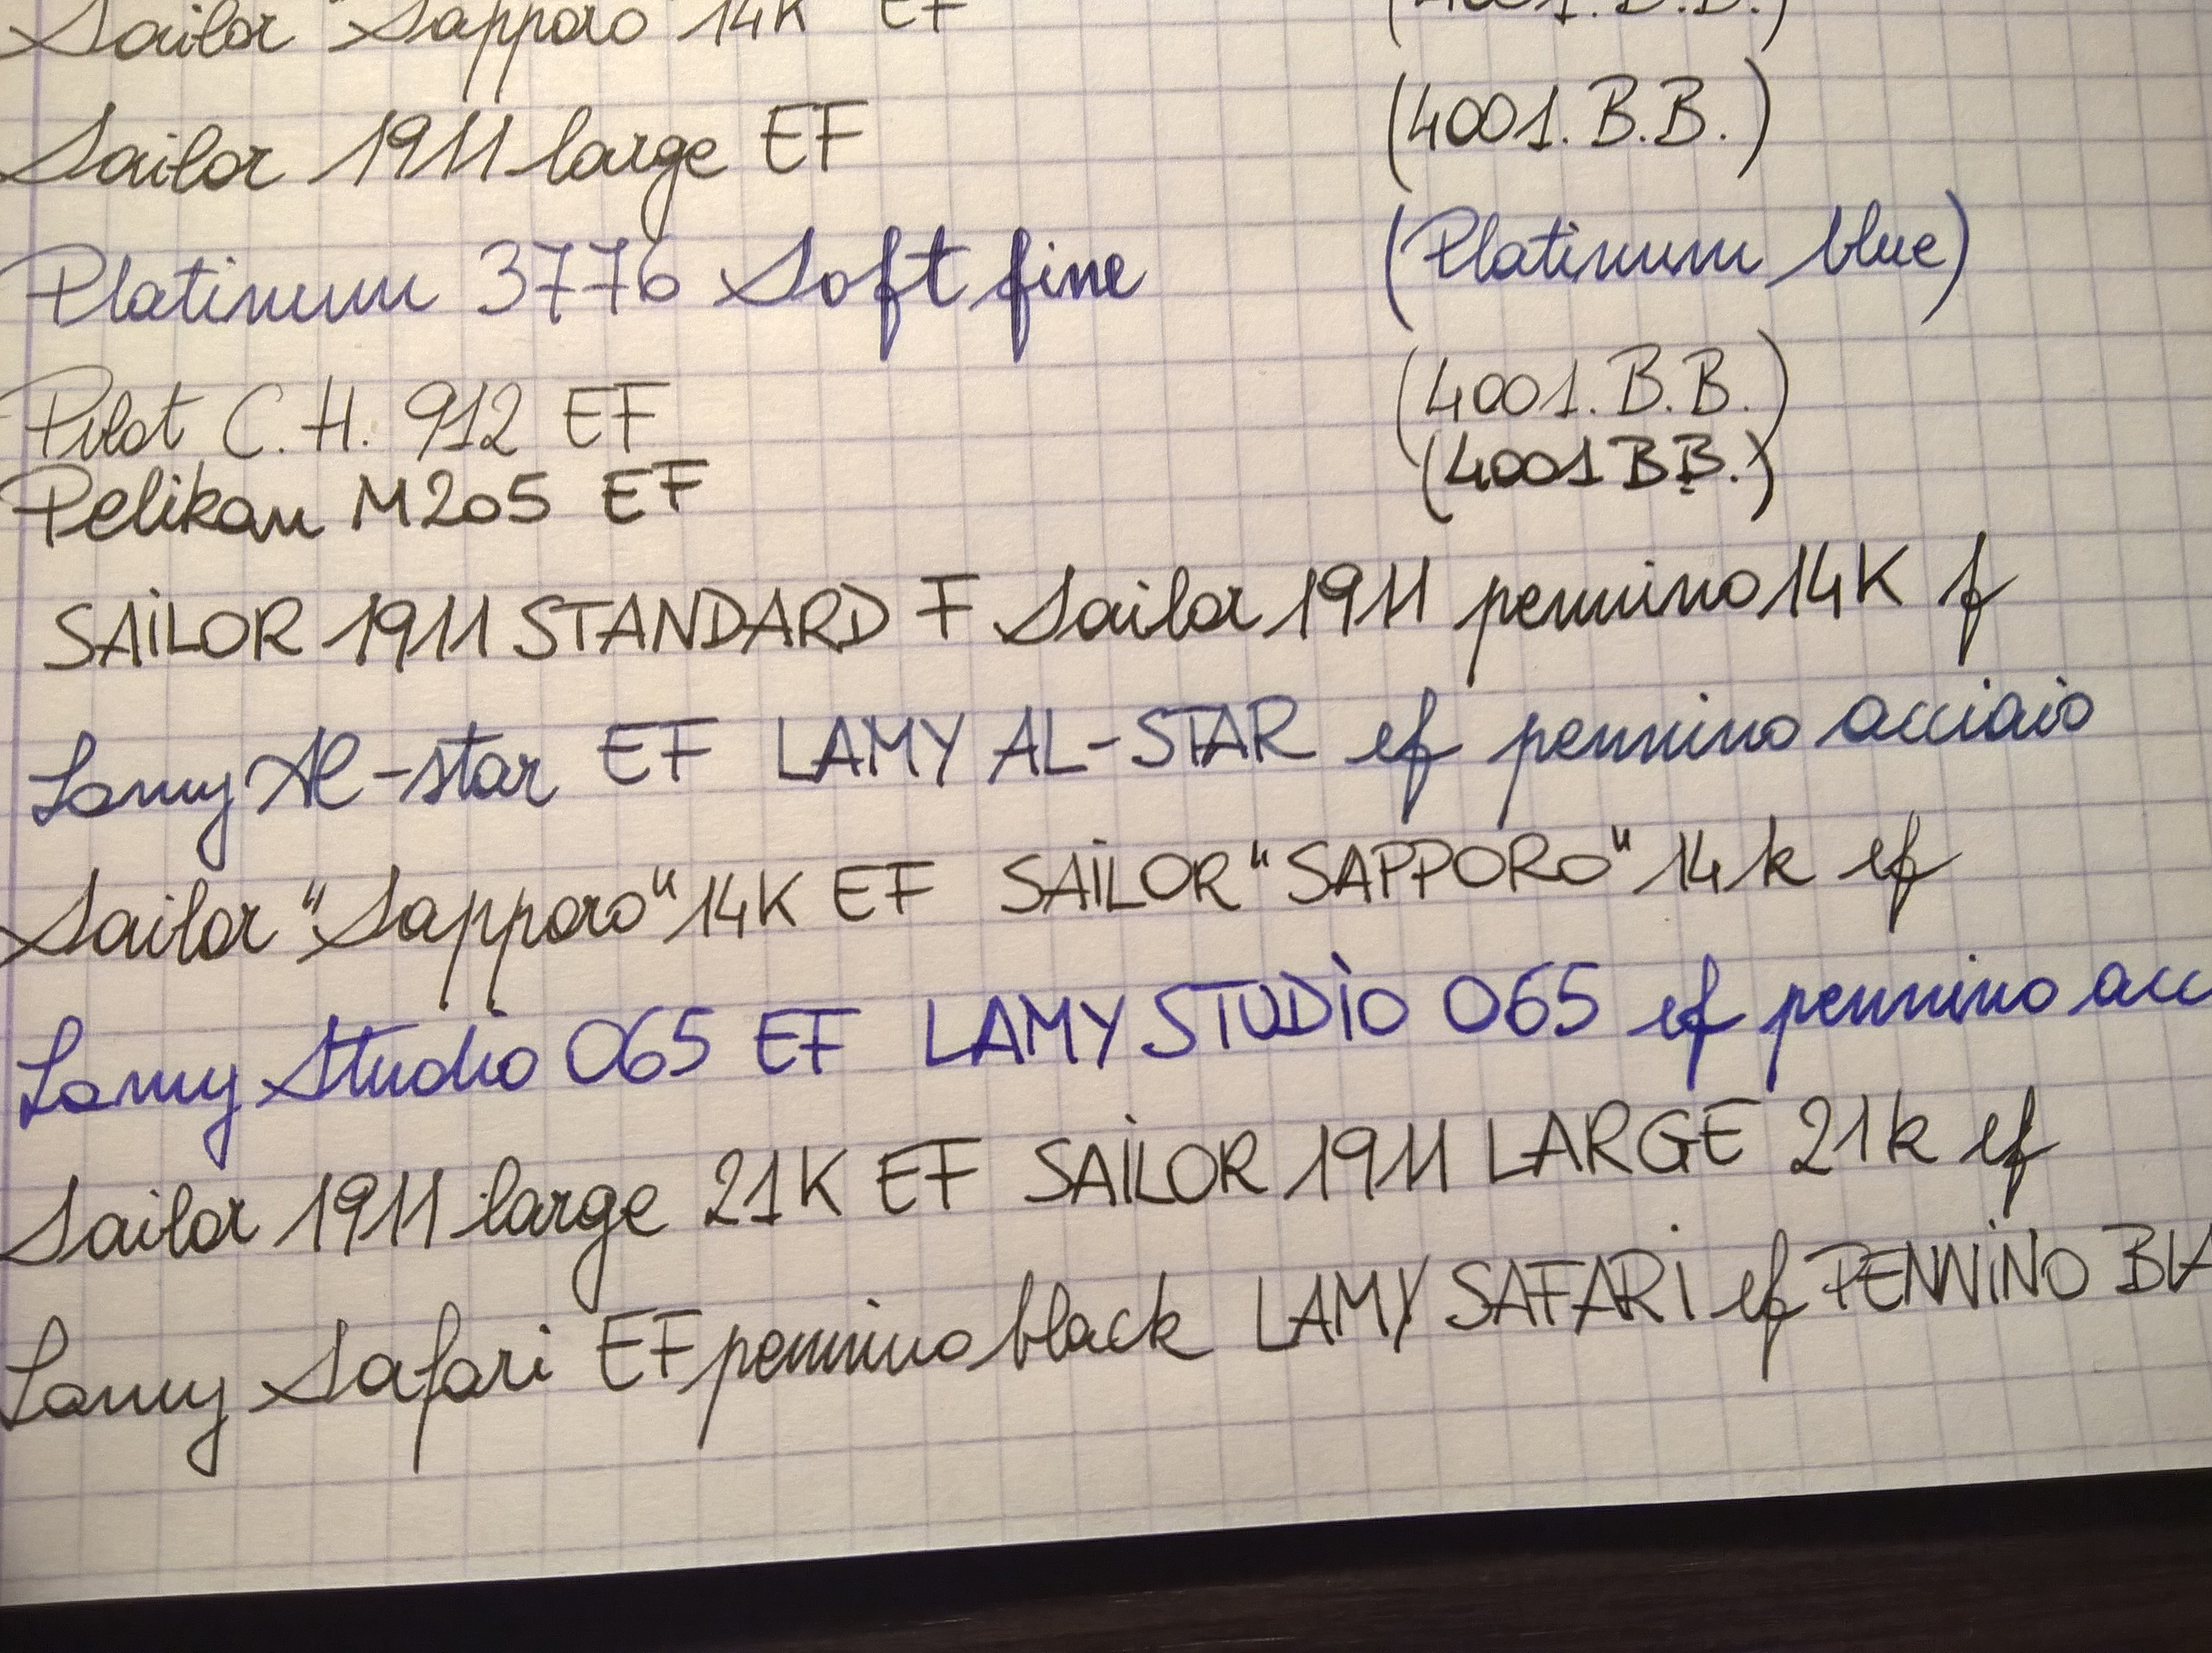 Sailor "Sapporo" 14K EF (4001.B.B.)
Sailor 1911 large EF (4001.B.B.)
Platinum 3776 Soft fine (Platinum blue)
Pilot C.H. 912 EF (4001.B.B.)
Pelikan M205 EF (4001 BB.)
SAILOR 1911 STANDARD F Sailor 1911 pennino 14K f
Lamy Al-star EF LAMY AL-STAR ef pennino acciaio
Sailor "Sapporo" 14K EF SAILOR "SAPPORO" 14k ef
Lamy Studio 065 EF LAMY STUDIO 065 ef pennino acc
Sailor 1911 large 21K EF SAILOR 1911 LARGE 21k ef
Lamy Safari EF pennino black LAMY SAFARI ef PENNINO BLA